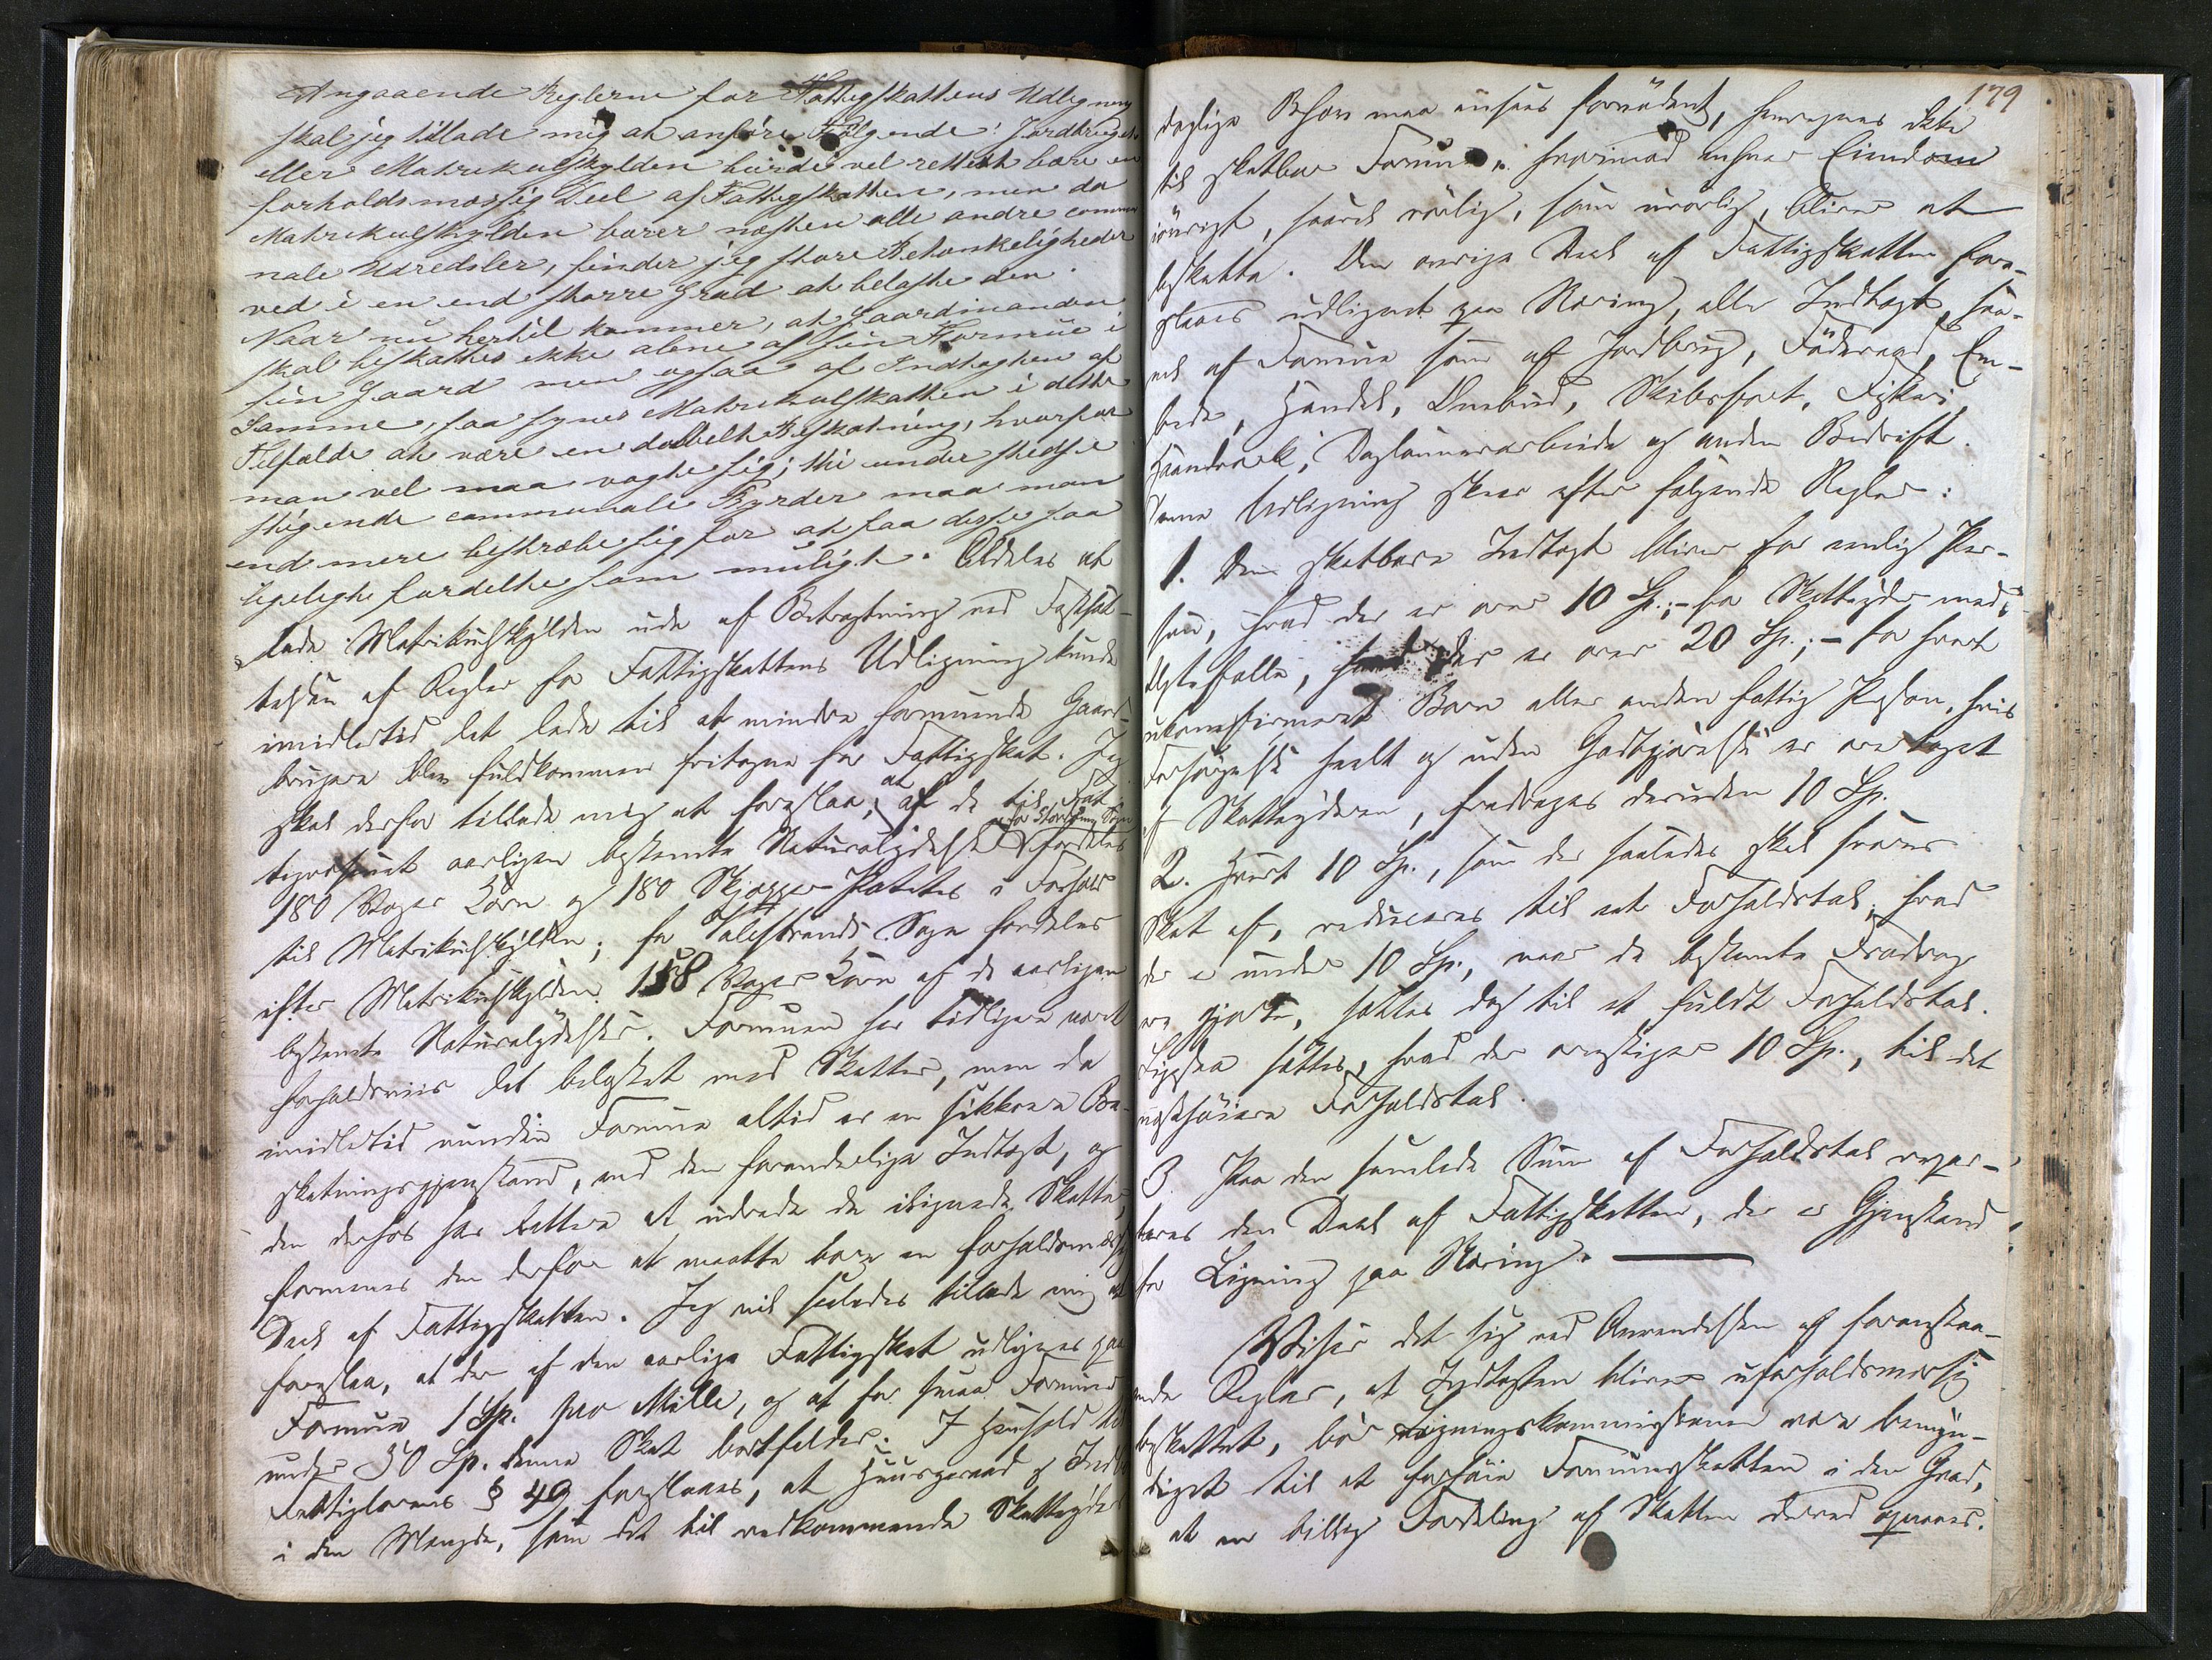 Angaaende Reglerne for Fattigskattens Udligning
skal jeg tillade mig at anføre Følgende: Jordbruget
eller Matrikulskylden burde vel rettest bære en
forholdsmæssig Deel af Fattigskatten, men da
Matrikulskylden bærer næsten alle andre commu
nale Udredsler, finder jeg store Betænkeligheder
ved i en end større Grad at belaste den.
Naar nu hertil kommer, at Gaardmanden
skal beskattes ikke alene af sin Formue i
sin Gaard men ogsaa af Indtægten af
Samme, saa synes Matrikulskatten i dette
Tilfælde at være en dobbelt Beskatning, hvorfor
man vel maa vogte sig; thi under stedse
stigende communale Byrder maa man
end mere bestræbe sig for at faa disse saa
ligeligt fordelte som muligt. Aldeles at
lade Matrikulskylden ude af Betragtning ved Fastsæt-
telsen af Regler for Fattigskattens Udligning kunde
imidlertid let lede til at mindre formuende Gaard-
brugere blev fuldkommen fritagne for Fattigskat. Jeg
skal derfor tillade mig at foreslaa, at af de til Fat
tigvæsenet aarligen bestemte Naturalydelser for Storsøens Sogn fordeles
180 Voger Korn og 180 Skjepper Poteter i Forhold
til Matrikulskylden; for Valestrands Sogn fordeles
efter Matrikulskylden 158 Voger Korn af de aarligen
bestemte Naturalydelser. Formuen har tidligere været
forholdsviis let belastet med Skatter, men da
imidlertid rundin Formue altid er en sikkrere Be-
skatningsgjenstand, end den foranderlige Indtægt, og
den derhos har lettere at udrede de ilignede Skatter,
formenes den derfor at maatte bære en forholdsmæssig
Deel af Fattigskatten. Jeg vil saaledes tillade mig at
foreslaa, at der af den aarlige Fattigskat udlignes paa
Formue 1 Sp. pro Mille, og at for smaa Formuer
under 50 Sp. denne Skat bortfalder. I Henhold til
Fattiglovens § 49 foreslaaes, at Huusgeraad og Indbo
i den Mængde, som det til vedkommende Skatteyders
179
daglige Behov maa ansees fornødent, henregnes ikke
til skatbar Formue, hvorimod enhver Eiendom
iøvrigt, saavel rørlig, som urørlig, bliver at
beskatte. Den øvrige Deel af Fattigskatten fore-
slaaes udlignet paa Næring, eller Indtægt, saa-
vel af Formue som af Jordbrug, Føderaad, Em-
bede, Handel, Ombud, Skibsfart, Fiskeri,
Haandværk, Daglønnerarbeide og anden Bedrift.
Denne Udligning skeer efter følgende Regler:
1. Den skatbare Indtægt bliver for enlig Per-
son, hvad der er over 10 Sp.; - for Skatteyder med
Ægtefælle, hvad der er over 20 Sp.; - for hvert
ukonfirmeret Barn eller anden fattig Person, hvis
Forsørgelse heelt og uden Godtgjørelse er overtaget
af Skatteyderen, fradrages desuden 10 Sp.
2. Hvert 10 Sp., som der saaledes skal svares
Skat af, reduceres til eet Forholdstal; hvad
der er under 10 Sp., naar de bestemte Fradrag
ere gjorte, sættes dog til et fuldt Forholdstal.
Ligesaa sættes, hvad der overstiger 10 Sp., til det
næsthøiere Forholdstal.
3. Paa den samlede Sum af Forholdstal repar-
teres den Deel af Fattigskatten, der er Gjenstand
for Ligning paa Næring.
Viser det sig ved Anvendelsen af foranstaa-
ende Regler, at Indtægten bliver uforholdsmæssig
beskattet, bør Ligningskommissionen være bemyn-
diget til at forhøie Formuesskatten i den Grad,
at en billig Fordeling af Skatten derved opnaaes.